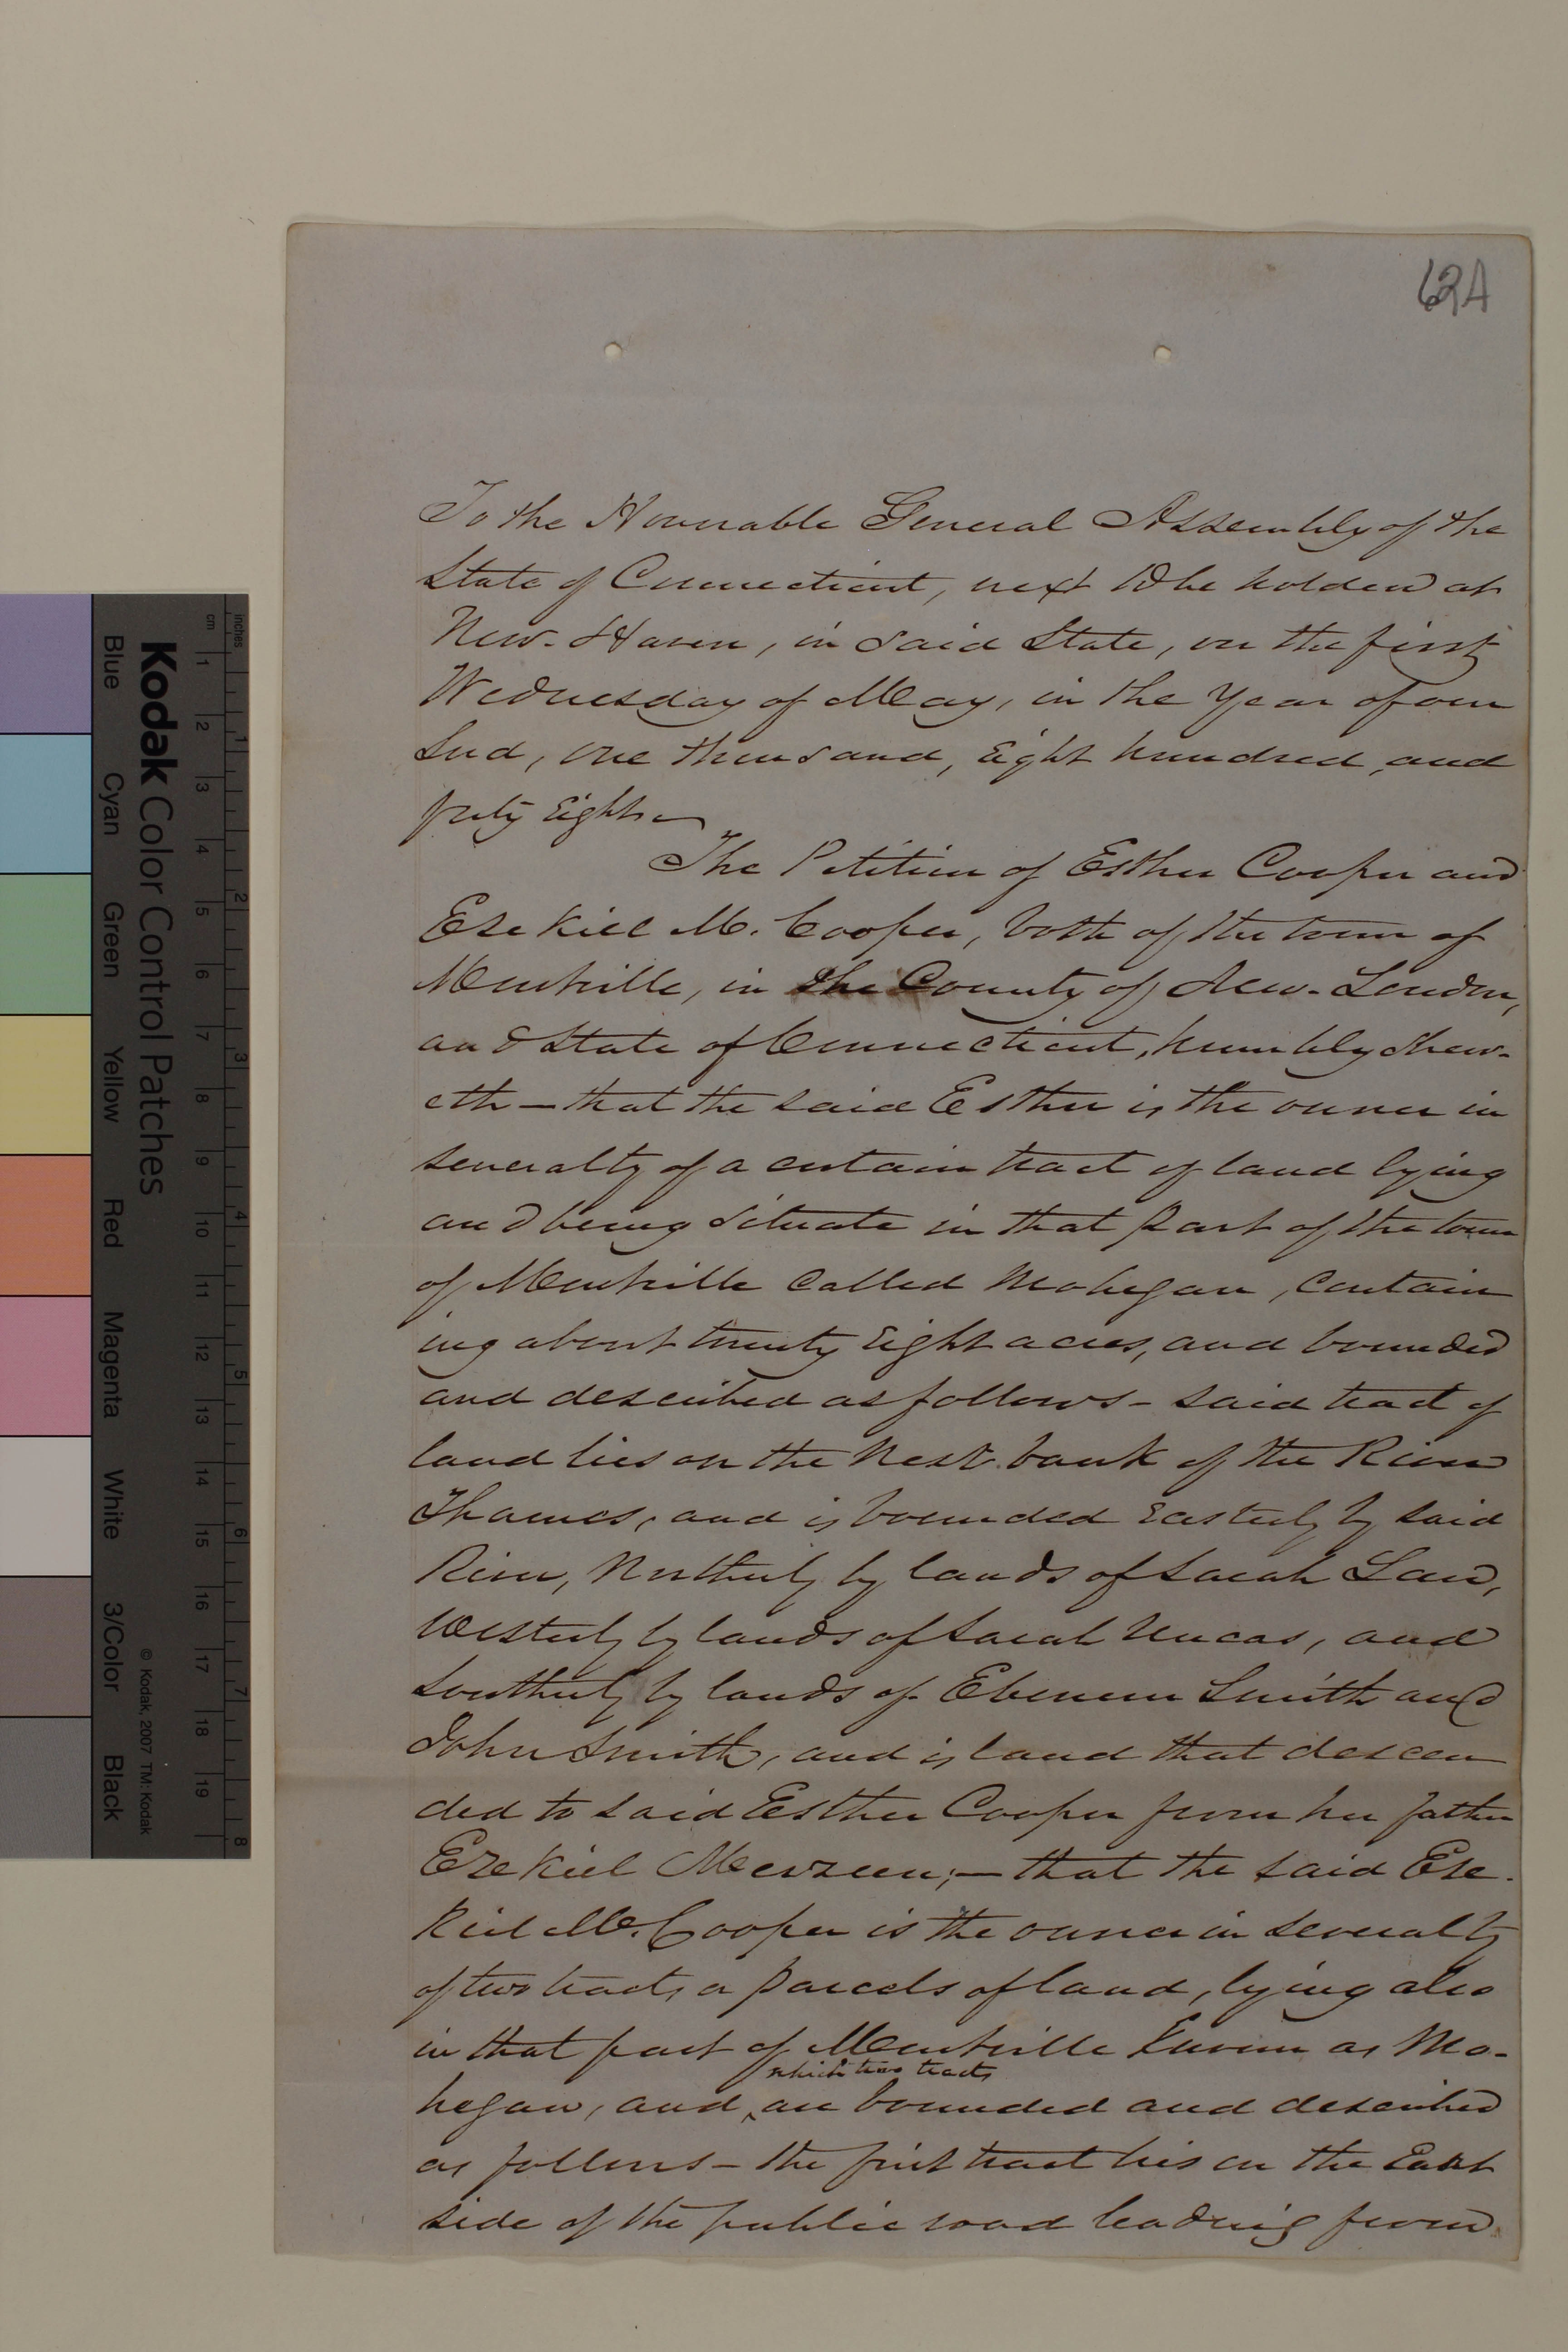 62A
To the Honourable General Assembly of the
State of Connecticut, next to be holden at
New-Haven, in said State, on the first
Wednesday of May, in the Year of our
Lord, one thousand, eight hundred, and
forty eight —
The Petition of Esther Cooper and
Ezekiel M. Cooper, both of the town of
Montville, in the County of New-London,
and State of Connecticut, humbly shew-
eth — that the said Esther is the owner in
severalty of a certain tract of land lying
and being situate in that part of the town
of Montville called Mohegan, contain
ing about twenty eight acres, and bounded
and described as follows - said tract of
land lies on the West bank of the River
Thames, and is bounded easterly by said
River, Northerly by lands of Sarah Law,
Westerly by lands of Sarah Uncas, and
Southerly by lands of Ebenezer Smith and
John Smith, and is land that descen
ded to said Esther Cooper from her father
Ezekiel Mezzeen; — that the said Eze-
kiel M. Cooper is the owner in severalty
of two tracts or parcels of land, lying also
in that part of Montville known as Mo-
which two tracts
hegan, and ^ are bounded and described
as follows - the first tract lies on the East
side of the public road leading from
Kodak Color Control Patches
© Kodak, 2007 TM: Kodak
Blue
Cyan
Green
Yellow
Red
Magenta
White
3/Color
Black
inches
1 2 3 4 5 6 7 8
cm
1 2 3 4 5 6 7 8 9 10 11 12 13 14 15 16 17 18 19